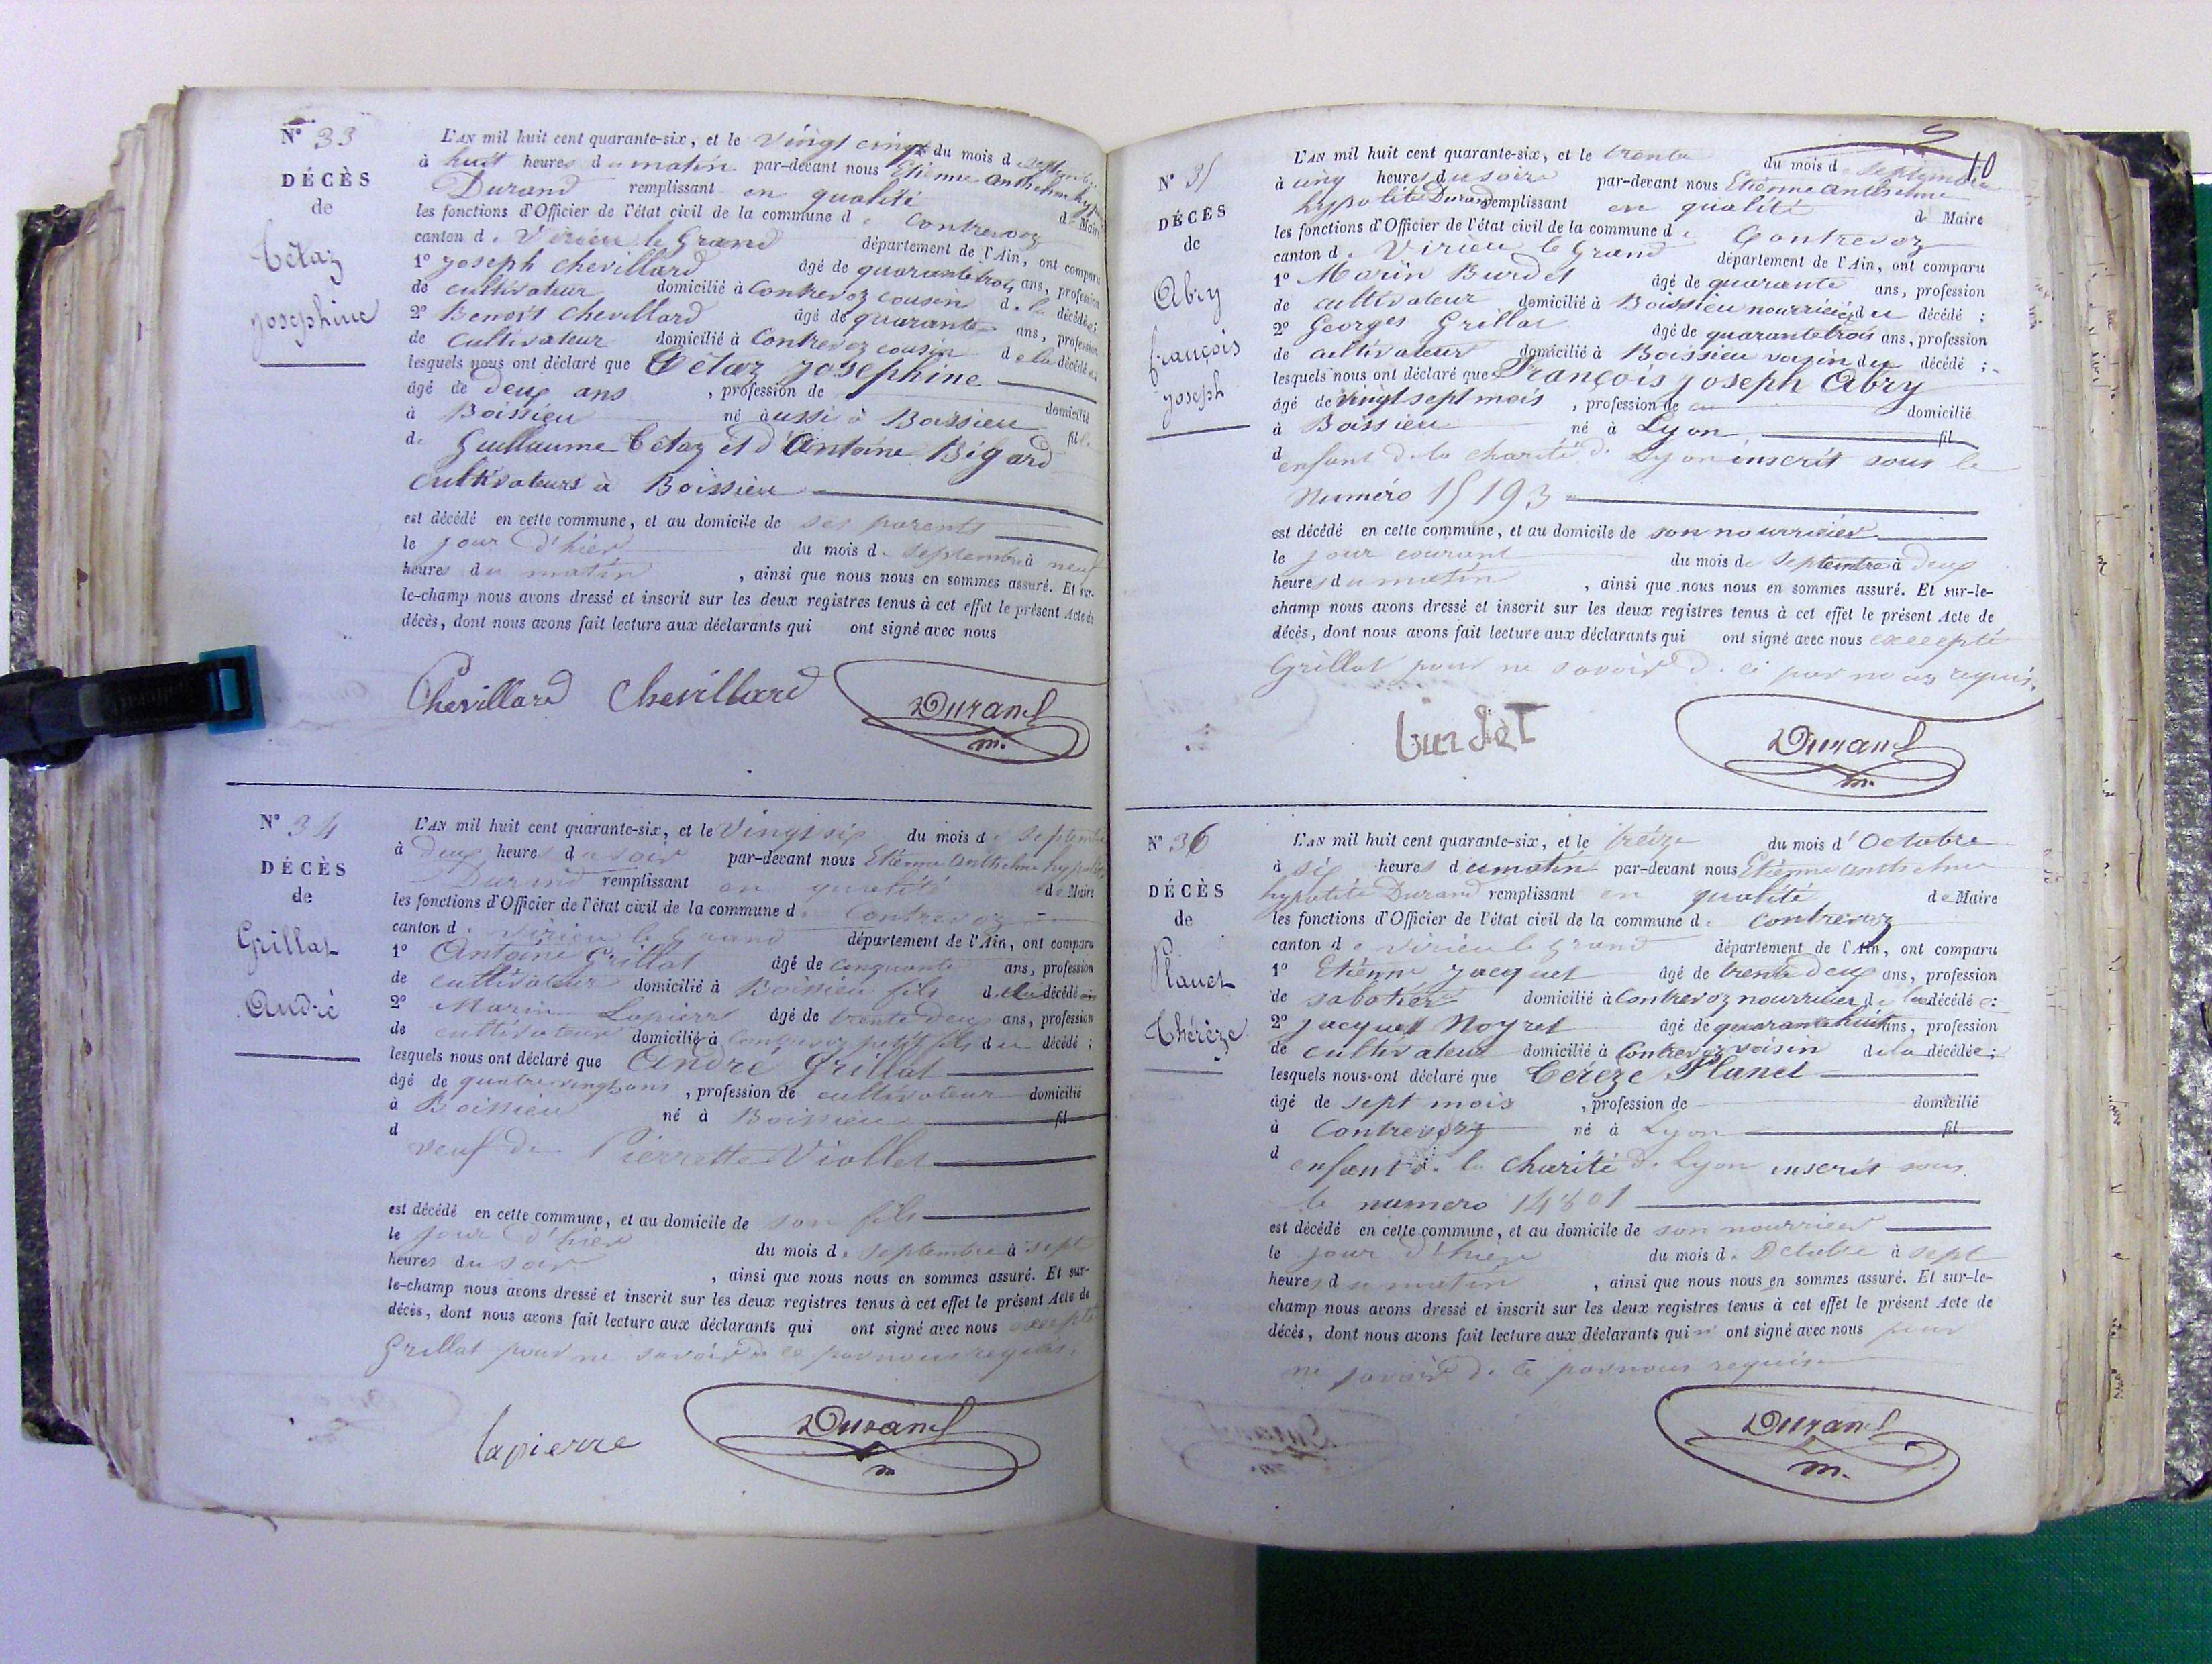 N° 33
DÉCÈS
de
Tétaz
Josephine
L'AN mil huit cent quarante-six, et le Vingt cinq du mois d septembre
à huit heures du matin par-devant nous Etienne anthelme hyp
Durand remplissant en qualité de Maire
les fonctions d'Officier de l'état civil de la commune de Contrevoz
canton de Virieu le Grand département de l'Ain, ont comparu
1° Joseph Chevillard âgé de quarante trois ans, profession
de cultivateur domicilié à Contrevoz cousin de la décédée
2° Benoit Chevillard âgé de quarante ans, profession
de cultivateur domicilié à Contrevoz cousin de la décédée
lesquels nous ont déclaré que Tétaz Josephine
âgé de deux ans , profession de domicilié
à Boissieu né aussi à Boissieu fille
de Guillaume Tétaz et d'Antoine Bigard
Cultivateurs à Boissieu
est décédé en cette commune, et au domicile de ses parents
le jour d'hier du mois de septembre à neuf
heures du matin , ainsi que nous nous en sommes assuré. Et sur-
le-champ nous avons dressé et inscrit sur les deux registres tenus à cet effet le présent Acte de
décès, dont nous avons fait lecture aux déclarants qui ont signé avec nous
Chevillard Chevillard Durand
m.
N° 34
DÉCÈS
de
Grillat
André
L'AN mil huit cent quarante-six, et le Vingt six du mois de septembre
à deux heures du soir par-devant nous Etienne anthelme hypolite
Durand remplissant en qualité de Maire
les fonctions d'Officier de l'état civil de la commune de Contrevoz
canton de Virieu le Grand département de l'Ain, ont comparu
1° Antoine Grillat âgé de cinquante ans, profession
de cultivateur domicilié à Boissieu fils du décédé
2° Marin Lapierre âgé de trente deux ans, profession
de cultivateur domicilié à Contrevoz petit fils du décédé ;
lesquels nous ont déclaré que André Grillat
âgé de quatre vingt ans , profession de cultivateur domicilié
à Boissieu né à Boissieu fil
d
veuf de Pierrette Viollet
est décédé en cette commune, et au domicile de son fils
le jour d'hier du mois de septembre à sept
heures du soir , ainsi que nous nous en sommes assuré. Et sur-
le-champ nous avons dressé et inscrit sur les deux registres tenus à cet effet le présent Acte de
décès, dont nous avons fait lecture aux déclarants qui ont signé avec nous excepté
Grillat pour ne savoir de ce par nous requis.
lapierre Durand
m
10
N° 35
DÉCÈS
de
Abry
françois
Joseph
L'AN mil huit cent quarante-six, et le trente du mois de septembre
à cinq heures du soir par-devant nous Etienne anthelme
hypolite Durand remplissant en qualité de Maire
les fonctions d'Officier de l'état civil de la commune de Contrevoz
canton de Virieu le Grand département de l'Ain, ont comparu
1° Marin Burdet âgé de quarante ans, profession
de cultivateur domicilié à Boissieu nourricier du décédé ;
2° Georges Grillat âgé de quarante trois ans, profession
de cultivateur domicilié à Boissieu voisin du décédé ;
lesquels nous ont déclaré que François Joseph Abry
âgé de vingt sept mois , profession de domicilié
à Boissieu né à Lyon fil
d enfant de la charité de Lyon inscrit sous le
numéro 15193
est décédé en cette commune, et au domicile de son nourricier
le jour courant du mois de septembre à deux
heures du matin , ainsi que nous nous en sommes assuré. Et sur-le-
champ nous avons dressé et inscrit sur les deux registres tenus à cet effet le présent Acte de
décès, dont nous avons fait lecture aux déclarants qui ont signé avec nous excepté
Grillat pour ne savoir de ce par nous requis.
burdet Durand
m.
N° 36
DÉCÈS
de
Planet
Thérèze
L'AN mil huit cent quarante-six, et le treize du mois d'Octobre
à six heures du matin par-devant nous Etienne anthelme
hypolite Durand remplissant en qualité de Maire
les fonctions d'Officier de l'état civil de la commune de Contrevoz
canton de Virieu le Grand département de l'Ain, ont comparu
1° Etienne Jacquet âgé de trente deux ans, profession
de sabotier domicilié à Contrevoz nourricier de la décédée ;
2° Jacquet Noyret âgé de quarante huit ans, profession
de cultivateur domicilié à Contrevoz voisin de la décédée ;
lesquels nous ont déclaré que Téreze Planet
âgé de sept mois , profession de domicilié
à Contrevoz né à Lyon fil
d enfant de la charité de Lyon inscrit sous
le numero 14801
est décédé en cette commune, et au domicile de son nourricier
le jour d'hier du mois de Octobre à sept
heures du matin , ainsi que nous nous en sommes assuré. Et sur-le-
champ nous avons dressé et inscrit sur les deux registres tenus à cet effet le présent Acte de
décès, dont nous avons fait lecture aux déclarants qui n' ont signé avec nous pour
ne savoir de ce par nous requis
Durand
m.